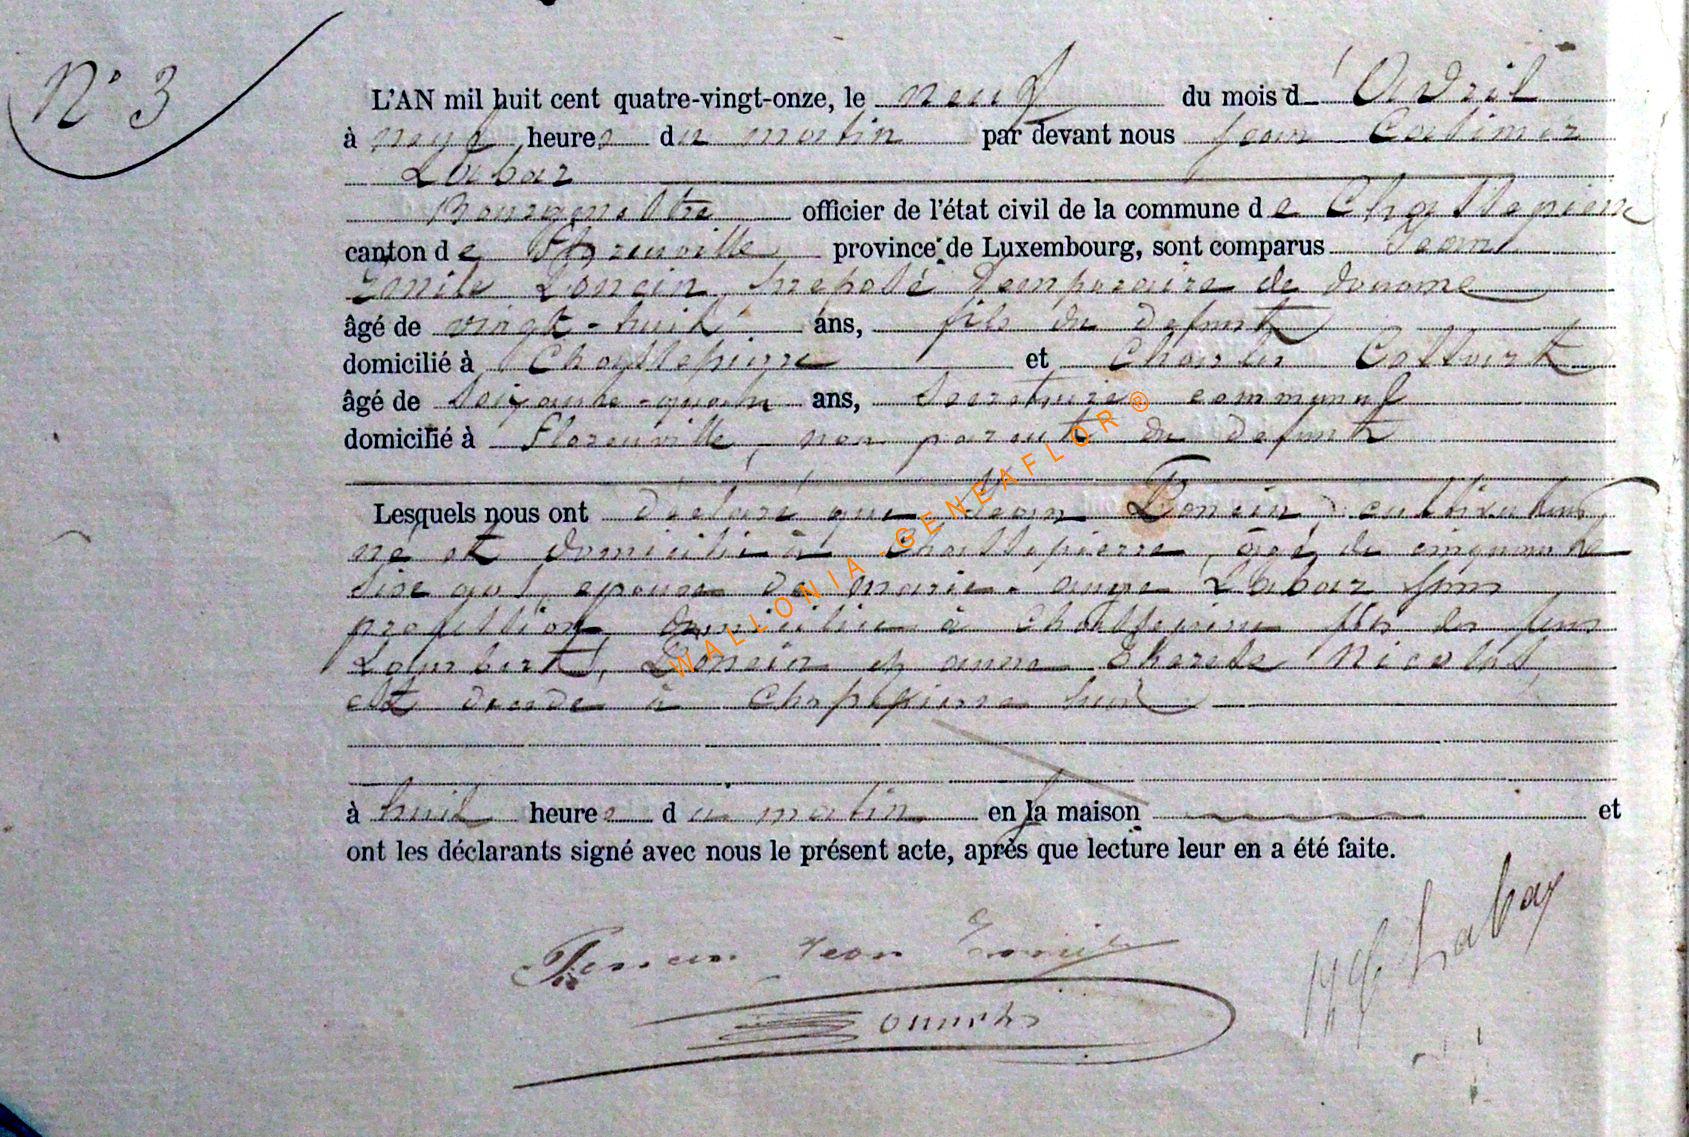 N° 3
L'AN mil huit cent quatre-vingt-onze, le neuf du mois d'Avril
à neuf heures du matin par devant nous Jean
Labar
Bourgmestre officier de l'état civil de la commune de Chassepierre
canton de Florenville province de Luxembourg, sont comparus Jean
Emile préposé temporaire de douane
âgé de vingt-huit ans, fils du defunt
domicilié à Chassepierre et Charles
âgé de soixante-quatre ans, Secretaire communal
domicilié à Florenville, non parent du defunt
Lesquels nous ont déclaré que Jean cultivateur
né et domicilié à Chassepierre, âgé de cinquante
six ans, epoux de marie-ange Labar sans
profession, domiciliée à Chassepierre fils des feus
Lambert et anne therese Nicolas,
est decedé à Chassepierre hier
à huit heures du matin en sa maison et
ont les déclarants signé avec nous le présent acte, après que lecture leur en a été faite.
Jean Emile
Labar
WALLONIA-GENEAFLOR ®